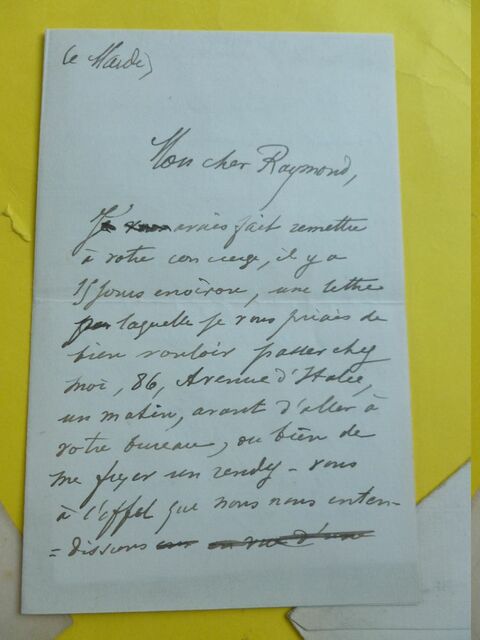 Le Mardi
Mon cher Raymond,
J'avais fait remettre
à votre concierge, il y a
15 jours environ, une lettre
par laquelle je vous priais de
bien vouloir passer chez
moi, 86, Avenue d'Italie,
un matin, avant d'aller à
votre bureau, ou bien de
me fixer un rendez-vous
à l'effet que nous nous enten-
= dissions en vue d'une